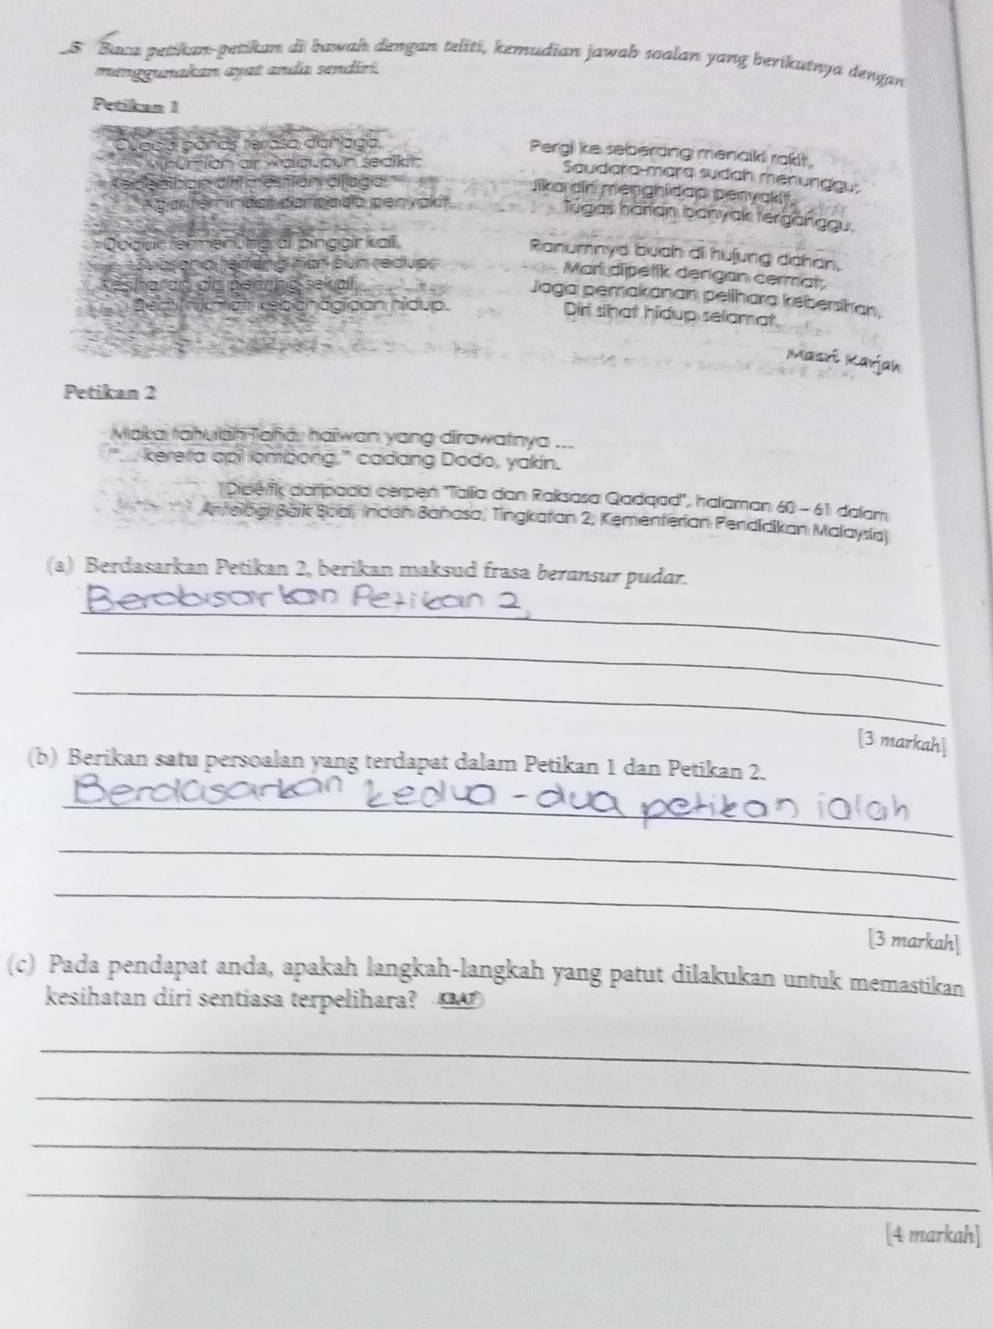 5 Baca petikan-petikan di bawah dengan teliti, kemudian jawab soalan yang berikutnya dengan
menggunakan ayat anda sendiri.
Petikan 1
Cuaca panas terasa dahaga,
Minumlah air walaupun sedikit;
dijaga
daripada penyakit.
di pinggir kali,
pun redup;
penting sekali,
kebahagiaan hidup.
Pergi ke seberang menaiki rakit,
Saudara-mara sudah menunggu;
Jika diri menghidap penyakit,
Tugas harian banyak terganggu.
Ranumnya buah di hujung dahan,
Mari dipetik dengan cermat;
Jaga pemakanan, pelihara kebersihan,
Diri sihat hidup selamat.
Masri Karjah
Petikan 2
Maka tahulah Taha, haiwan yang dirawatnya ...
"... kereta api lombong," cadang Dodo, yakin.
[Dipetik daripada cerpen "Talia dan Raksasa Qadqad", halaman 60 – 61 dalam
Antologi Baik Budi, Indah Bahasa, Tingkatan 2, Kementerian Pendidikan Malaysia]
(a) Berdasarkan Petikan 2, berikan maksud frasa beransur pudar.
Berdasarkan Petikan 2,
[3 markah]
(b) Berikan satu persoalan yang terdapat dalam Petikan 1 dan Petikan 2.
Berdasarkan kedua-dua petikan ialah
[3 markah]
(c) Pada pendapat anda, apakah langkah-langkah yang patut dilakukan untuk memastikan
kesihatan diri sentiasa terpelihara? KBAT
[4 markah]